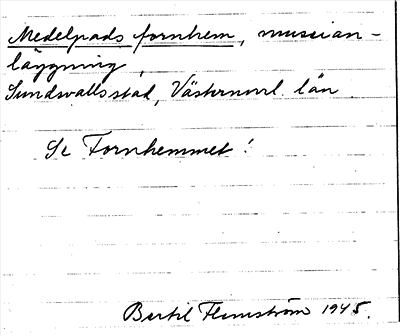 Medelpads fornhem, musian-
läggning,
Sundsvalls stad, Västernorrl. län.
Se Fornhemmet!
Bertil Flemström 1945.